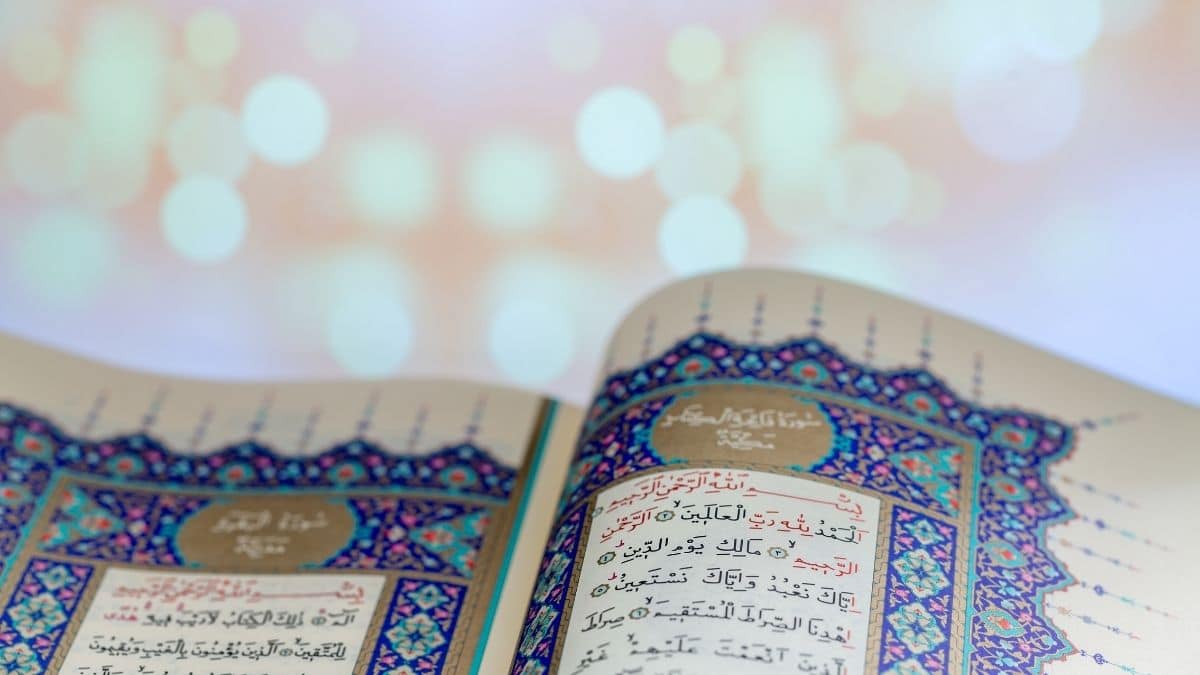 سورة فاتحة الكتاب
مكية
بِسْــــمِ اللّٰهِ الرَّحْمٰنِ الرَّحِيمِ
اَلْحَمْدُ لِلّٰهِ رَبِّ الْعَالَمٖينَ ۙ ١ اَلرَّحْمٰنِ
الرَّحٖيمِ ۙ ٢ مَالِكِ يَوْمِ الدّٖينِ ؕ ٤
اِيَّاكَ نَعْبُدُ وَاِيَّاكَ نَسْتَعٖينُ ؕ ٥
اِهْدِنَا الصِّرَاطَ الْمُسْتَقٖيمَ ۙ ٦ صِرَاطَ
الَّذٖينَ اَنْعَمْتَ عَلَيْهِمْ غَيْرِ
سورة البقرة
مدنية
بِسْــــمِ اللّٰهِ الرَّحْمٰنِ الرَّحِيمِ
الٓمٓ ۚ ١ ذٰلِكَ الْكِتَابُ لَا رَيْبَ فٖيهِ هُدًى
لِلْمُتَّقٖينَ ۙ اَلَّذٖينَ يُؤْمِنُونَ بِالْغَيْبِ وَيُقٖيمُونَ